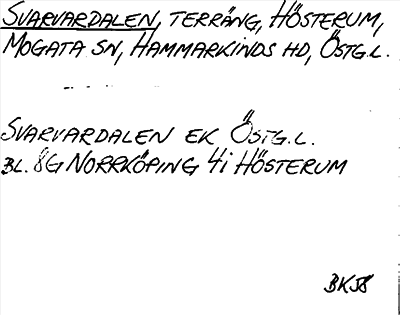 SVARVARDALEN, TERRÄNG, HÖSTERUM,
MOGATA SN, HAMMARKINDS HD, ÖSTG.L.
SVARVARDALEN EK ÖSTG.L.
BL. 8G NORRKÖPING 4i HÖSTERUM
BK58